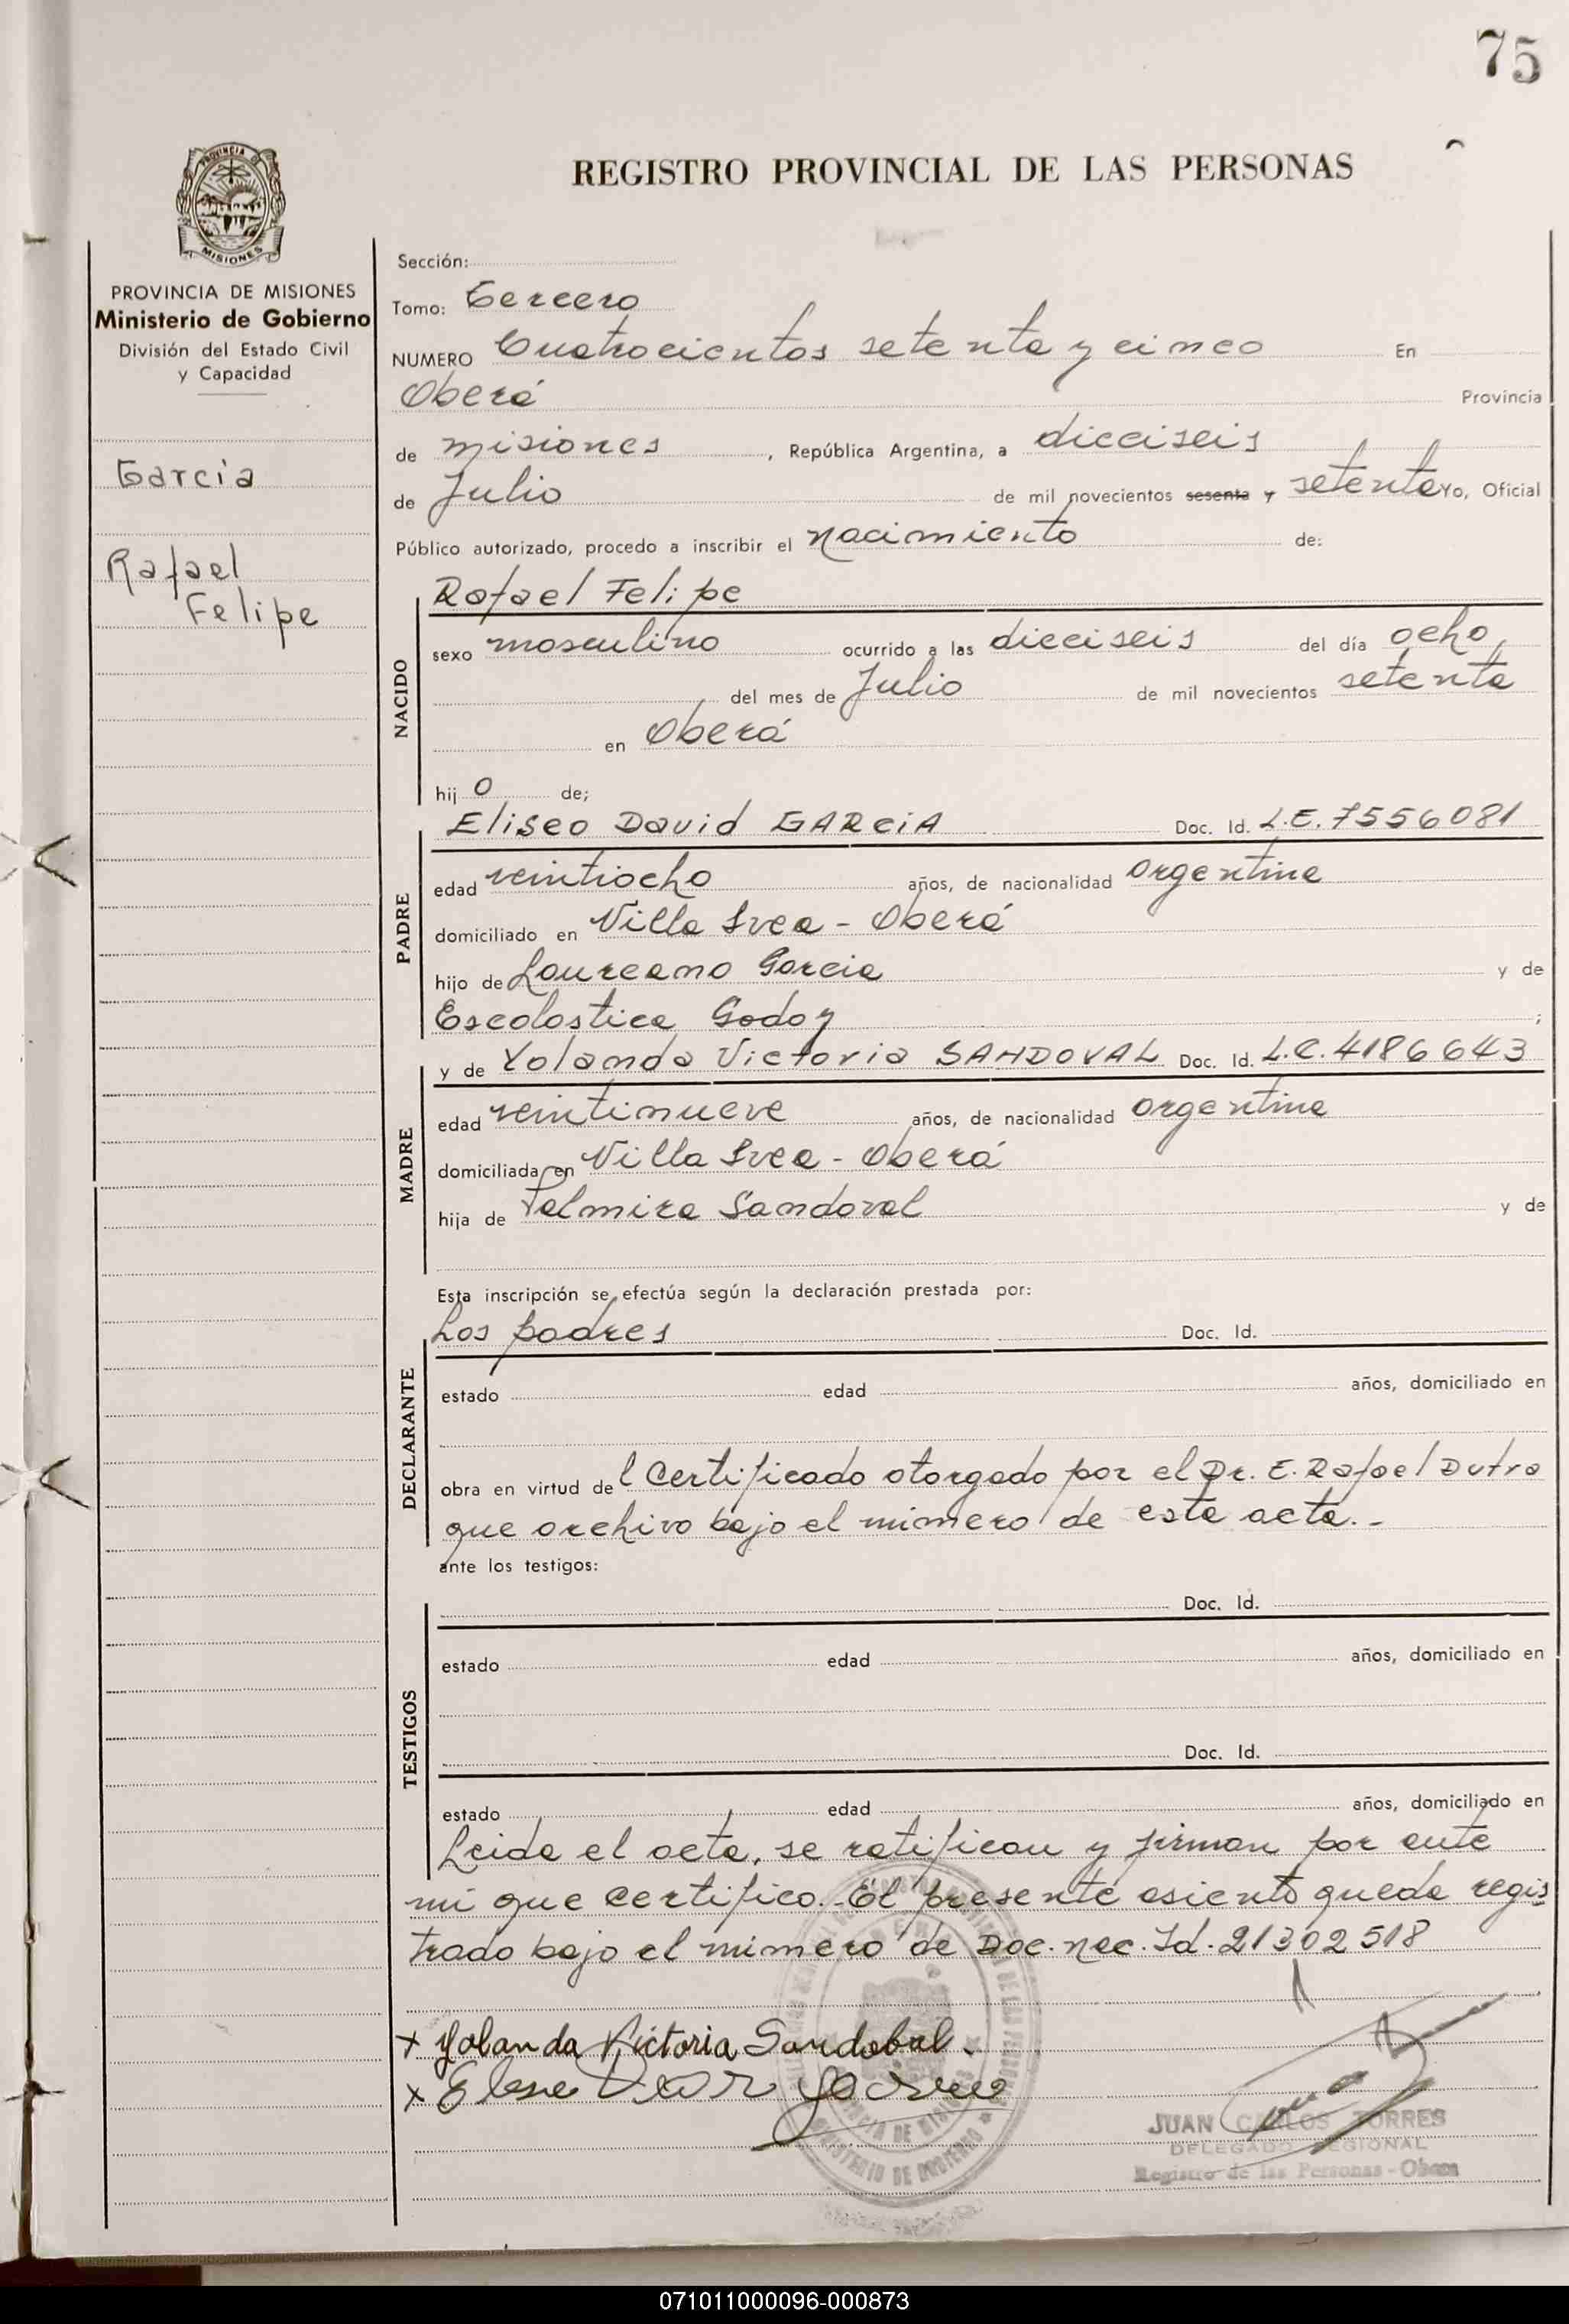 75
REGISTRO PROVINCIAL DE LAS PERSONAS
PROVINCIA DE
MISIONES
PROVINCIA DE MISIONES
Ministerio de Gobierno
División del Estado Civil
y Capacidad
García
Rafael
Felipe
Sección:
Tomo: Tercero
NUMERO Cuatrocientos setenta y cinco En
Oberá Provincia
de misiones, República Argentina, a dieciseis
de Julio de mil novecientos sesenta y setenta Yo, Oficial
Público autorizado, procedo a inscribir el nacimiento de:
NACIDO
Rafael Felipe
sexo masculino ocurrido a las dieciseis del día ocho
del mes de Julio de mil novecientos setenta
en Oberá
hij o de;
PADRE
Eliseo David GARCIA Doc. Id. L.E. 7556081
edad veintiocho años, de nacionalidad argentina
domiciliado en Villa Svea - Oberá
hijo de Laureano Garcia y de
Escolastica Godoy;
MADRE
y de Yolanda Victoria SANDOVAL Doc. Id. L.C. 4186643
edad veintinueve años, de nacionalidad argentina
domiciliada en Villa Svea - Oberá
hija de Palmira Sandoval y de
Esta inscripción se efectúa según la declaración prestada por:
DECLARANTE
Los padres Doc. Id.
estado edad años, domiciliado en
obra en virtud de l Certificado otorgado por el Dr. E. Rafael Dutra
que archivo bajo el número de esta acta.-
ante los testigos:
TESTIGOS
Doc. Id.
estado edad años, domiciliado en
Doc. Id.
estado edad años, domiciliado en
Leida el acta, se ratifican y firman por ante
mi que certifico.- El presente asiento queda regis
trado bajo el número de Doc. nac. Id. 21302518
x Yolanda Victoria Sandobal.
x
JUAN CARLOS TORRES
DELEGADO REGIONAL
Registro de las Personas - Obera
071011000096-000873